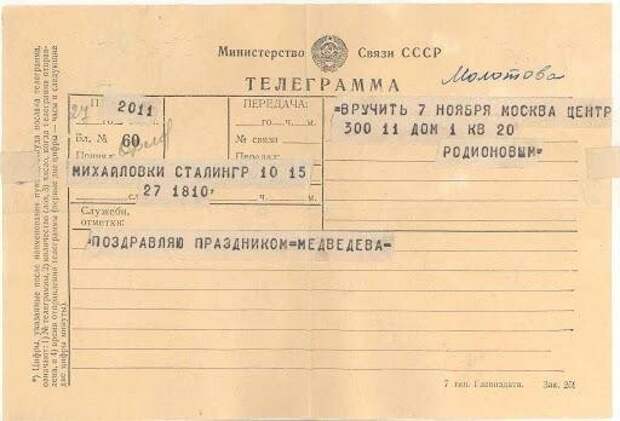 Министерство Связи СССР
ТЕЛЕГРАММА
Молотова
2011
ПЕРЕДАЧА:
го ч. м.
Бл. № 60
№ связи
=ВРУЧИТЬ 7 НОЯБРЯ МОСКВА ЦЕНТР
300 11 ДОМ 1 КВ 20
РОДИОНОВЫМ=
МИХАЙЛОВКИ СТАЛИНГР 10 15
27 1810=
ч. м.
Служебн.
отметки:
=ПОЗДРАВЛЯЮ ПРАЗДНИКОМ=МЕДВЕДЕВА=
*) Цифры, указанные после наименования
означают: 1) № телеграммы, 2) количество слов, 3) число, когда телеграмма отправ-
лена, и 4) время отправления телеграммы (первые две цифры — часы и следующие
две цифры минуты).
Зак. 251